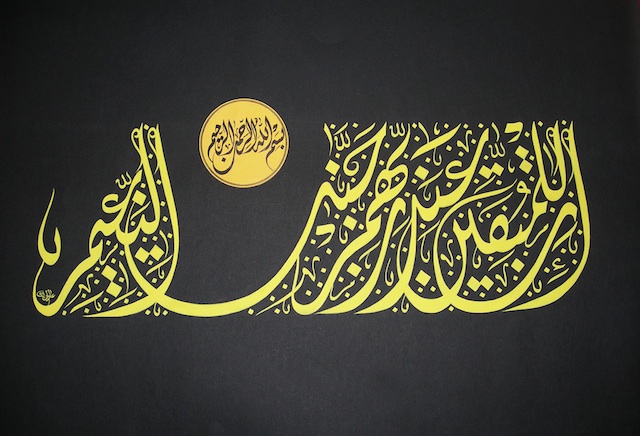 بسم الله الرحمن الرحيم
إن للمتقين عند ربهم جنات النعيم